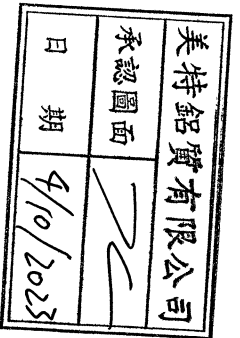 美特鋁質有限公司
承認圖面
日期 4/10/2023